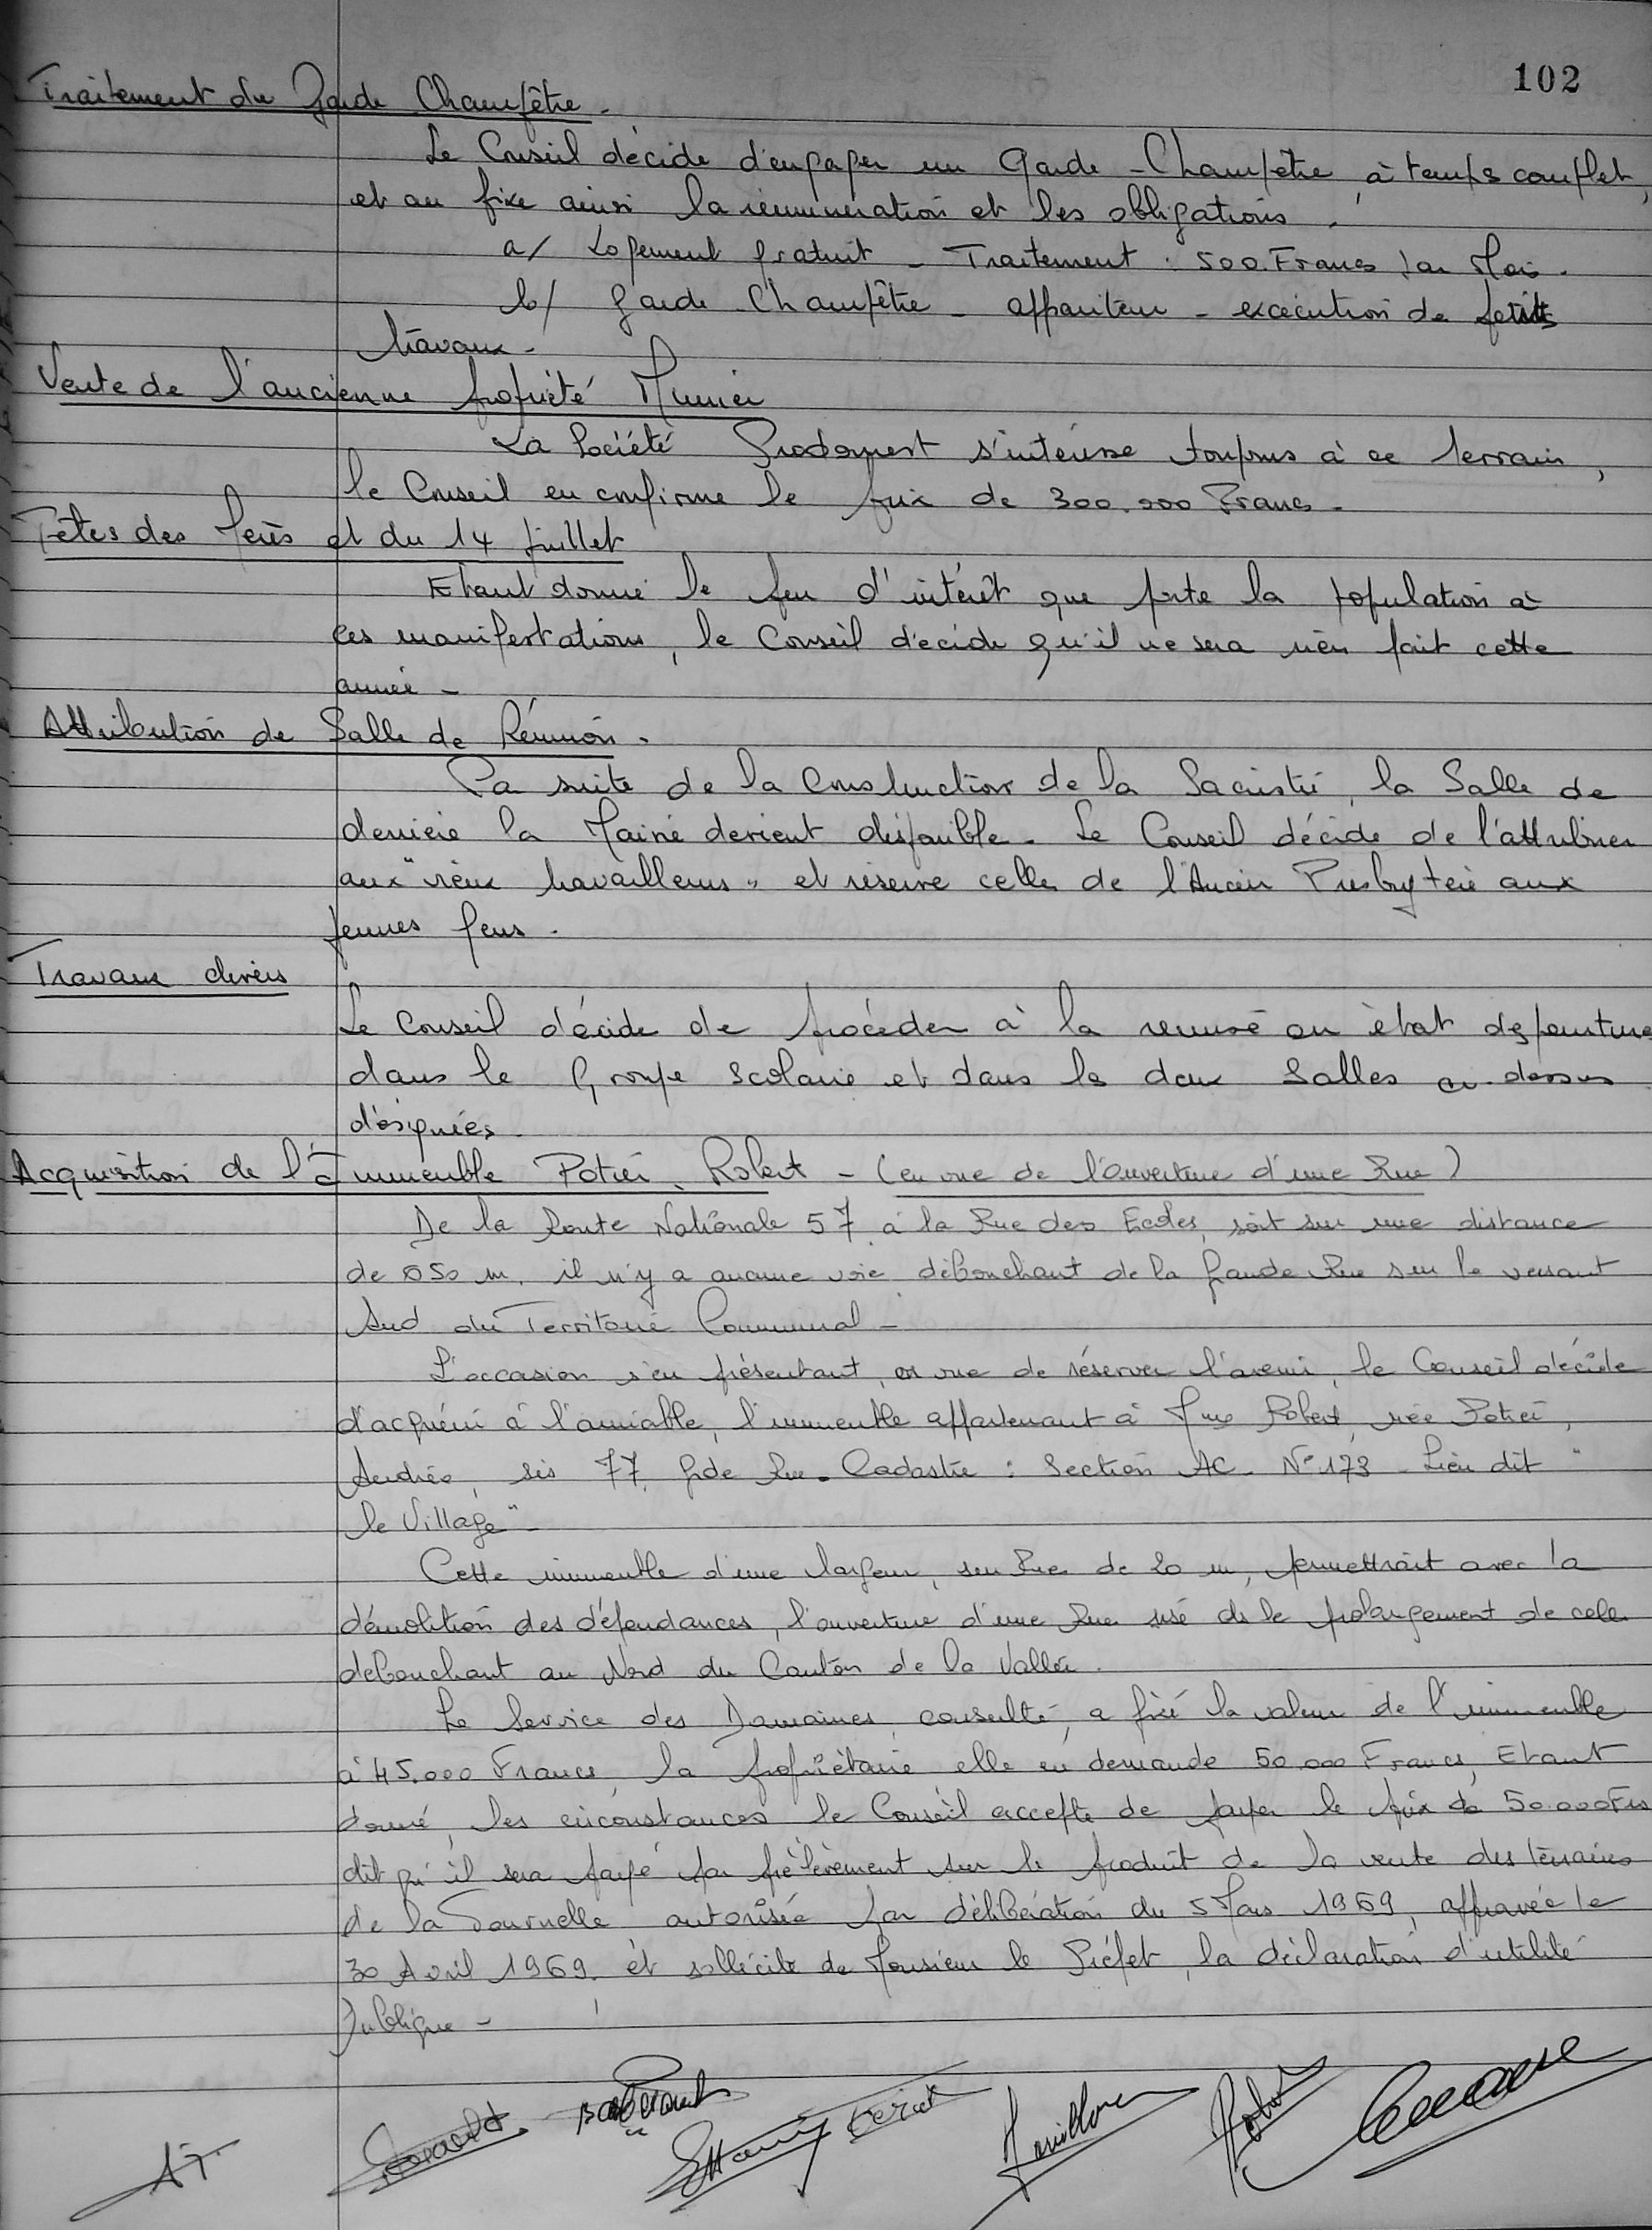 102
Traitement du Garde Champêtre.
Le Conseil décide d'engager un Garde-Champêtre à temps complet,
et en fixe ainsi la rémunération et les obligations.
a/ Logement gratuit - Traitement : 500 Francs par Mois.
b/ Garde-Champêtre - appariteur - exécution de petits
travaux.
Vente de l'ancienne propriété Munier
La Société s'intéresse toujours à ce terrain,
le Conseil en confirme le prix de 300.000 Francs.
Fêtes des Mères et du 14 Juillet
Etant donné le peu d'intérêt que porte la population à
ces manifestations, le Conseil décide qu'il ne sera rien fait cette
année -
Attribution de Salle de Réunion.
Par suite de la Construction de la Sacristie, la Salle de
derrière la Mairie devient disponible. Le Conseil décide de l'attribuer
aux "vieux travailleurs" et réserve celle de l'Ancien Presbytère aux
jeunes gens.
Travaux divers
Le Conseil décide de procéder à la remise en état des peintures
dans le Groupe Scolaire et dans les deux Salles ci-dessus
désignées.
Acquisition de l'immeuble Potier, Robert - (en vue de l'ouverture d'une Rue)
De la Route Nationale 57 à la Rue des Ecoles, soit sur une distance
de 050 m. il n'y a aucune voie débouchant de la Grande Rue sur le versant
Sud du Territoire Communal -
L'occasion s'en présentant, en vue de réserver l'avenir, le Conseil décide
d'acquérir à l'amiable, l'immeuble appartenant à Mme Robert, née Potier,
Andrée, sis 77, Gde Rue. Cadastre : Section AC - N° 173 - Lieu dit "
le Village" -
Cette immeuble d'une largeur, sur Rue de 20 m, permettrait avec la
démolition des dépendances, l'ouverture d'une Rue sise ds le prolongement de celle
débouchant au Nord du Canton de la Vallée.
Le Service des Domaines, consulté, a fixé la valeur de l'immeuble
à 45.000 Francs, la propriétaire elle en demande 50.000 Francs, Etant
donné, les circonstances le Conseil accepte de payer le prix de 50.000 Frs
dit qu'il sera payé par prélèvement sur le produit de la vente des terrains
de la Tournelle autorisée par délibération du 5 Mars 1969, approuvée le
30 Avril 1969. et sollicite de Monsieur le Préfet, la déclaration d'utilité
Publique -